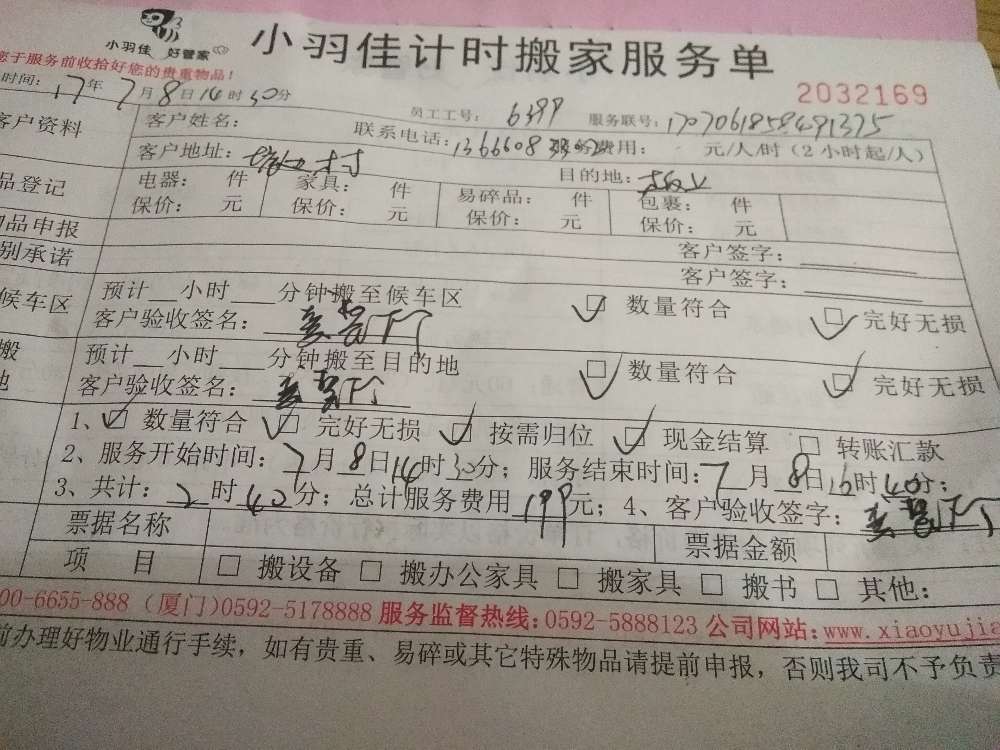 小羽佳 好管家
小羽佳计时搬家服务单
您于服务前收拾好您的贵重物品！
2032169
时间：17年7月8日14时30分
员工工号：6399 服务联号：1707061858491375
客户资料 客户姓名： 联系电话：费用： 元/人/时（2小时起/人）
客户地址： 村 目的地：
品登记 电器： 件 家具： 件 易碎品： 件 包裹： 件
保价： 元 保价： 元 保价： 元 保价： 元
物品申报 客户签字：
别承诺 客户签字：
候车区 预计__小时___分钟搬至候车区 数量符合 完好无损
客户验收签名：
搬 预计__小时___分钟搬至目的地 数量符合 完好无损
地 客户验收签名：
1、☑数量符合 ☑完好无损 ☑按需归位 ☑现金结算 □转账汇款
2、服务开始时间：7月8日14时30分；服务结束时间：7月8日16时40分；
3、共计：2时40分；总计服务费用199元；4、客户验收签字：
票据名称 票据金额
项 目 □搬设备 □搬办公家具 □搬家具 □搬书 □其他：
00-6655-888（厦门）0592-5178888 服务监督热线：0592-5888123 公司网站：www.xiaoyujia
前办理好物业通行手续，如有贵重、易碎或其它特殊物品请提前申报，否则我司不予负责